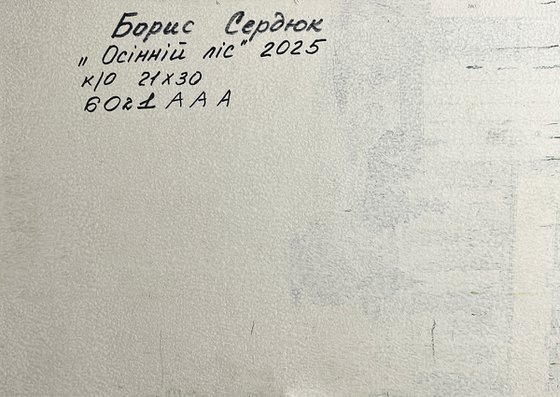 Борис Сердюк
„Осінній ліс" 2025
к/о 21х30
6021 А А А